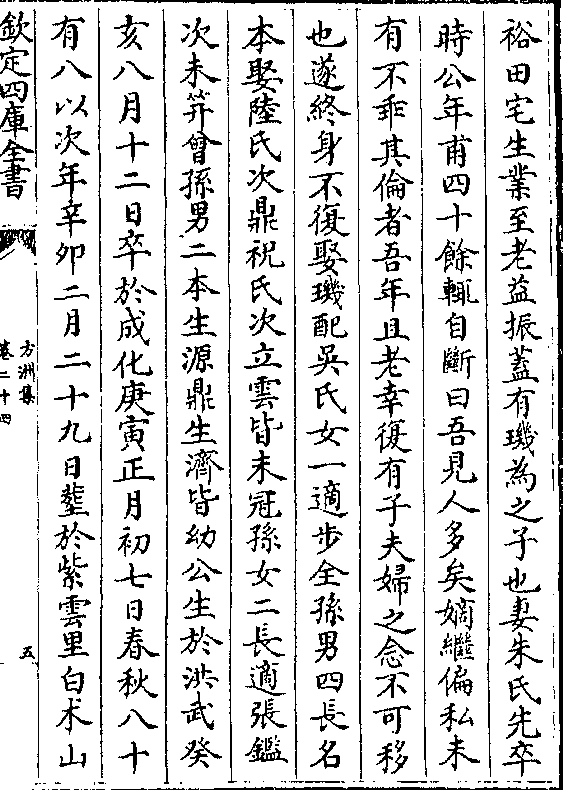 裕田宅生業至老益振蓋有璣為之子也妻朱氏先卒
時公年甫四十餘輒自斷曰吾見人多矣嫡繼偏私未
有不乖其倫者吾年且老幸復有子夫婦之念不可移
也遂終身不復娶璣配吳氏女一適步全孫男四長名
本娶陸氏次鼎祝氏次立雲皆未冠孫女二長適張鑑
次未笄曾孫男二本生源鼎生濟皆幼公生於洪武癸
亥八月十二日卒於成化庚寅正月初七日春秋八十
有八以次年辛卯二月二十九日塟於紫雲里白朮山
欽定四庫全書
方洲集
卷二十四
五